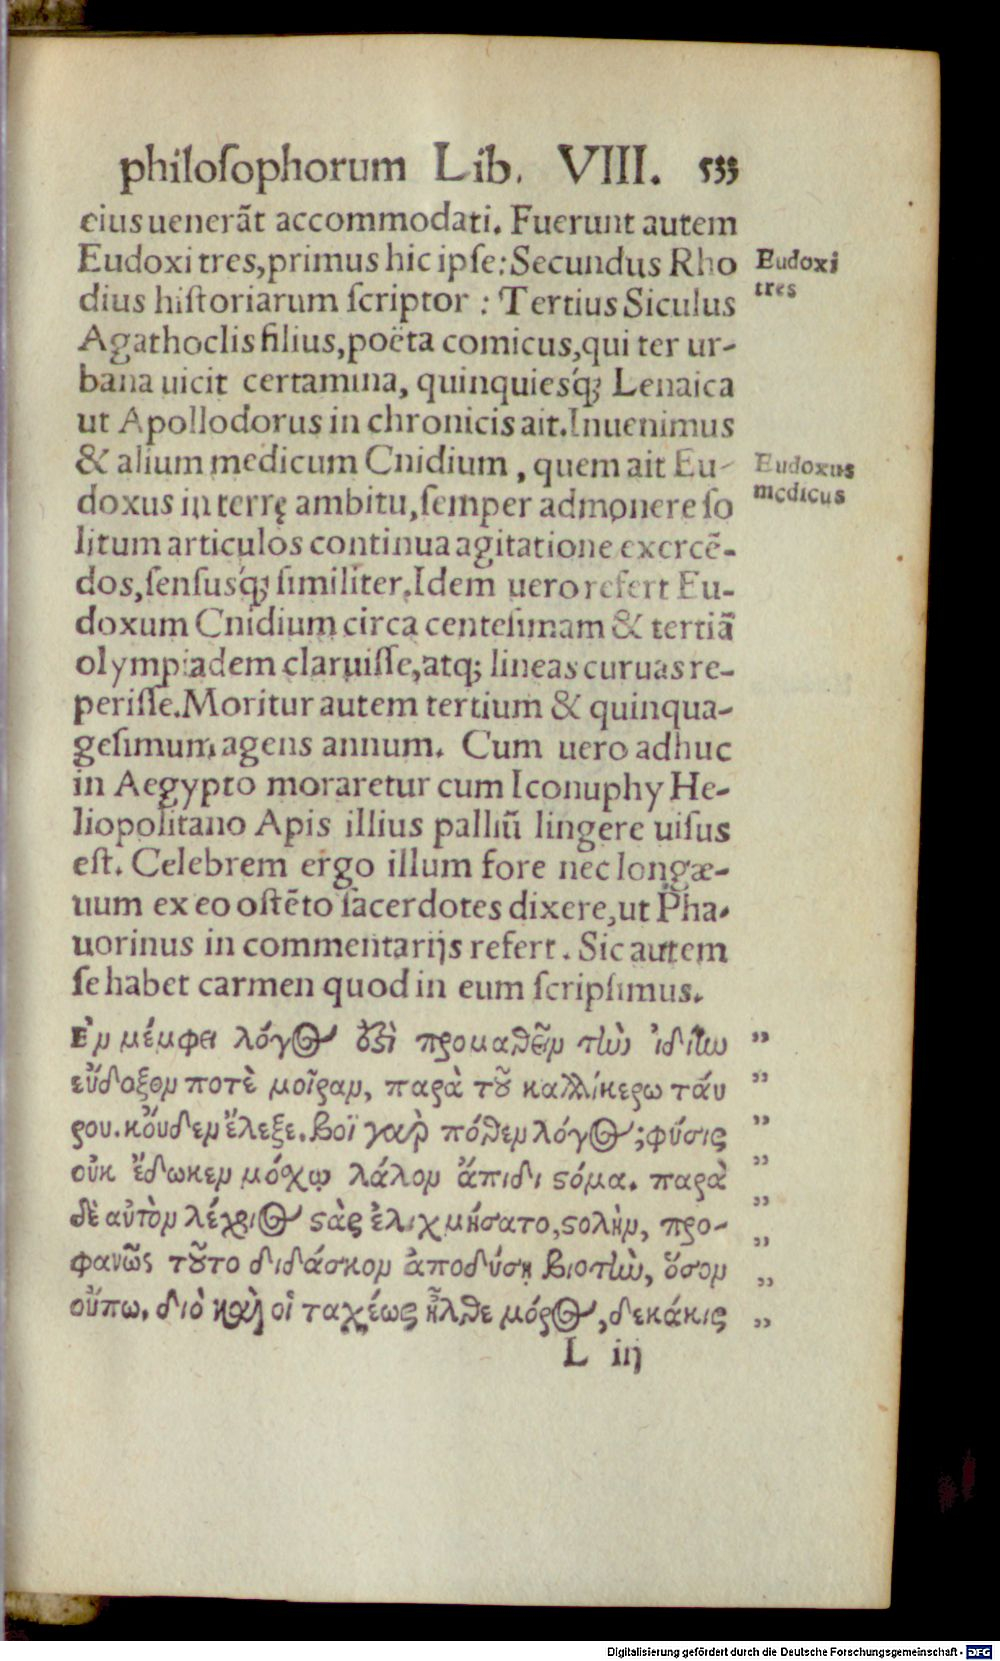 philoſophorum Lib. VIII. 533
eius uenerāt accommodati. Fuerunt autem
Eudoxi tres, primus hic ipſe: Secundus Rho
dius hiſtoriarum ſcriptor : Tertius Siculus
Agathoclis filius, poëta comicus, qui ter ur-
bana uicit certamina, quinquiesq́; Lenaica
ut Apollodorus in chronicis ait. Inuenimus
& alium medicum Cnidium, quem ait Eu-
doxus in terrę ambitu, ſemper admonere ſo
litum articulos continua agitatione exercē-
dos, ſenſusq́; ſimiliter. Idem uero refert Eu-
doxum Cnidium circa centeſimam & tertiā
olympiadem claruiſſe, atq; lineas curuas re-
periſſe. Moritur autem tertium & quinqua-
geſimum agens annum. Cum uero adhuc
in Aegypto moraretur cum Iconuphy He-
liopolitano Apis illius palliū lingere uiſus
eſt. Celebrem ergo illum fore nec longæ-
uum ex eo oſtēto ſacerdotes dixere, ut Pha-
uorinus in commentarijs refert. Sic autem
ſe habet carmen quod in eum ſcripſimus.
Ἐν μέμφει λόγος ὅξι προμαθεῖν τὼ ἰδίτω ”
εὔδοξον ποτὲ μοῖραν, παρὰ τοῦ καλλίκερω τάυ ”
ρου. κοὔδεν ἔλεξε. βοῒ γαρ πόθεν λόγος; φύσις ”
οὐκ ἔδωκεν μόχῳ λάλον ἄπιδι ϛόμα. παρὰ ”
δὲ αὐτὸν λέχριος ϛὰς ἐλιχμήσατο, ϛολὴν, προ- ”
φανῶς τοῦτο διδάσκον ἀποδύσῃ βιοτὼ, ὅσον ”
οὔπω. διὸ καὶ οἱ ταχέως ἦλθε μόρος, δεκάκις ”
L iij
Eudoxi
tres
Eudoxus
medicus
Digitalisierung gefördert durch die Deutsche Forschungsgemeinschaft - DFG